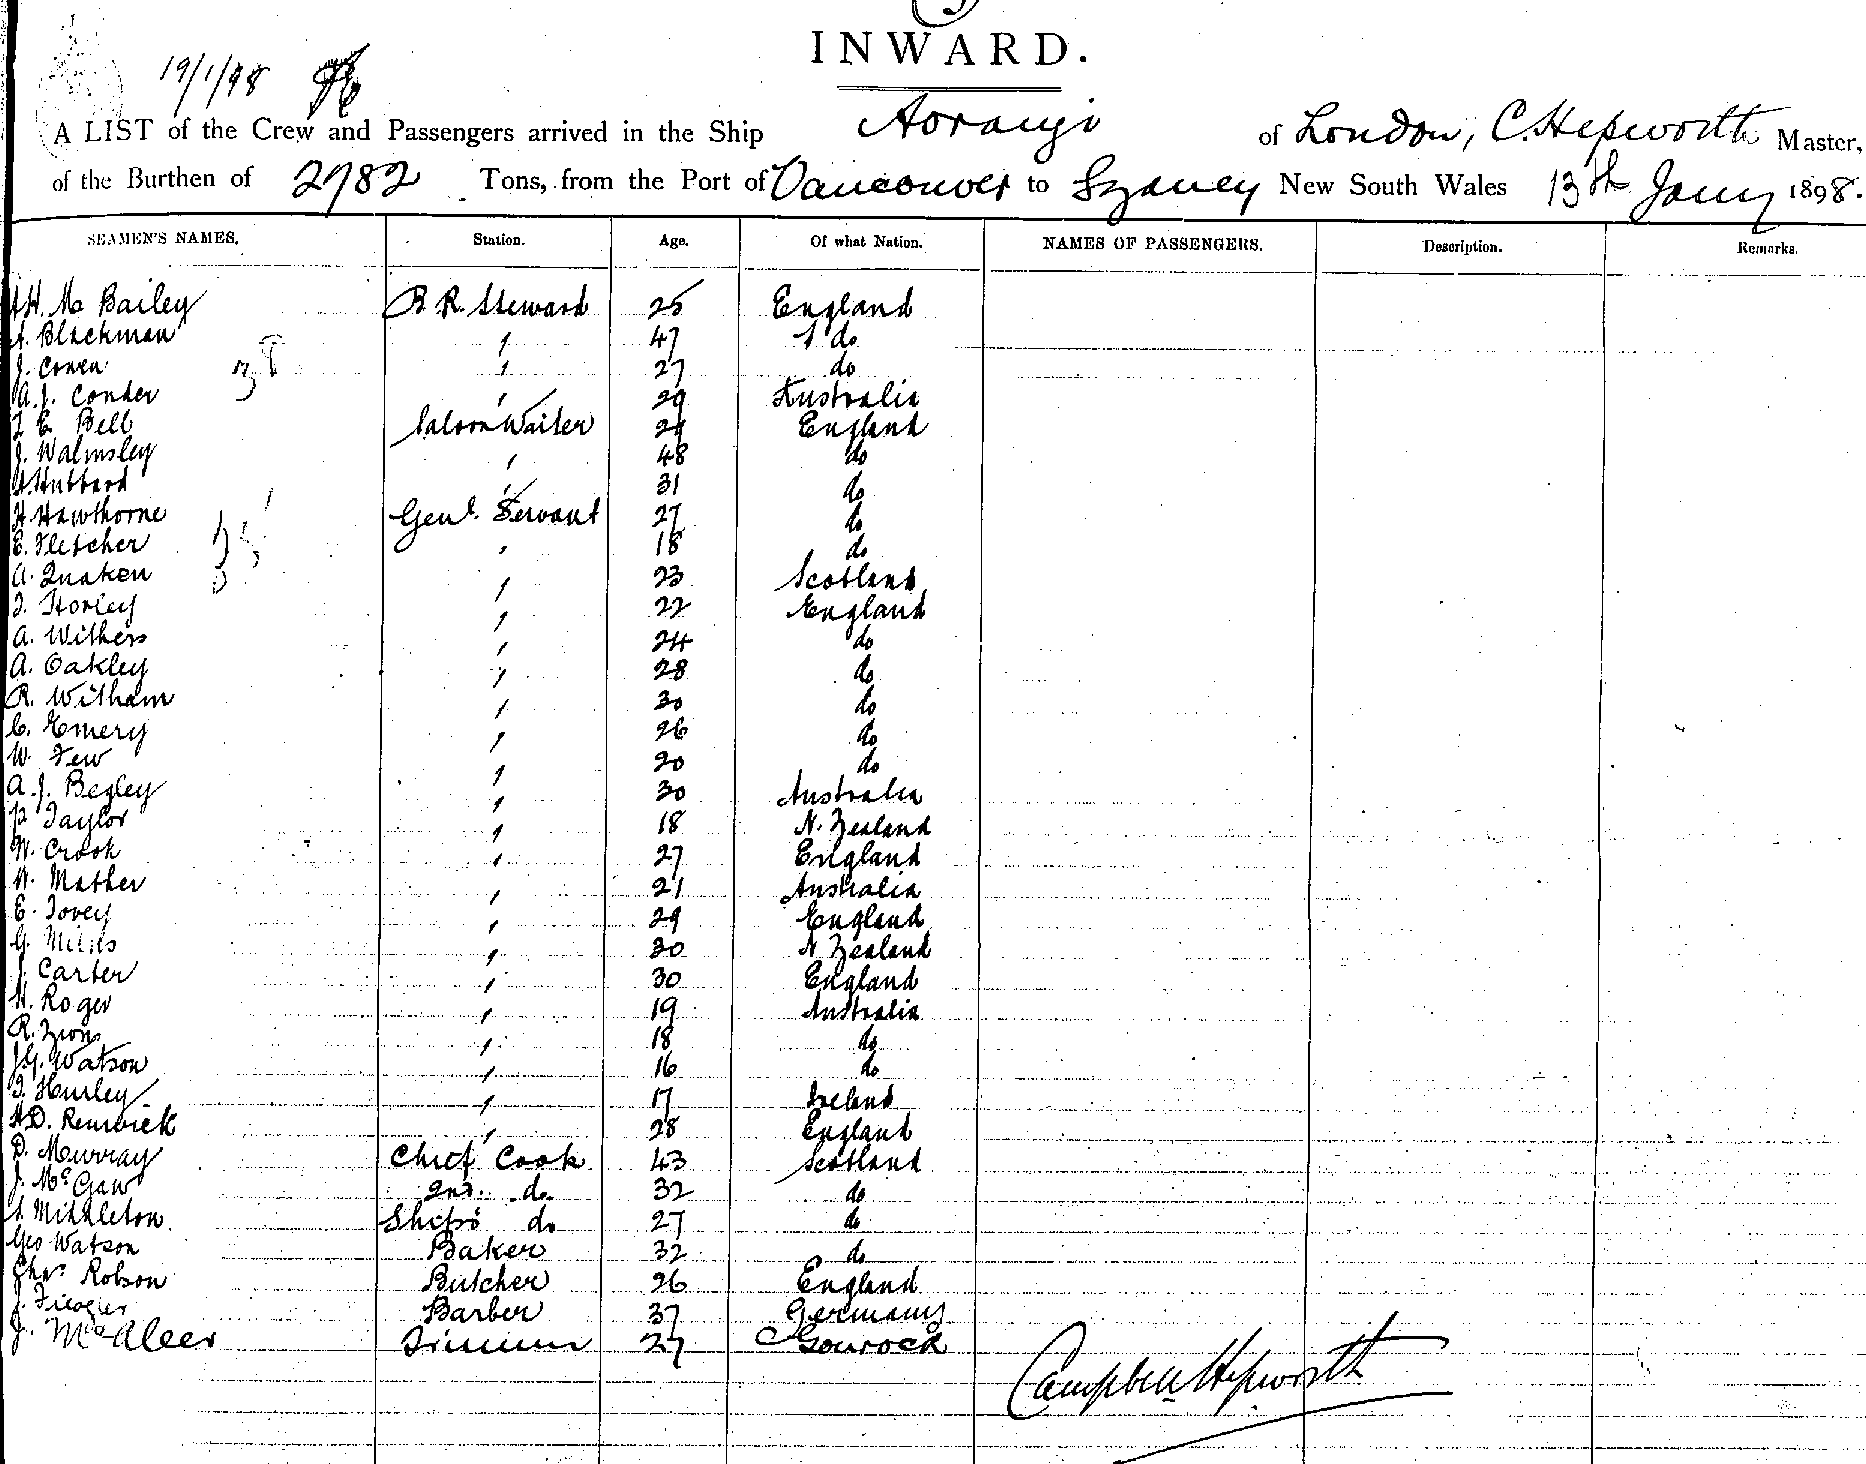 19/1/98
INWARD.
A LIST of the Crew and Passengers arrived in the Ship Aorangi of London, C. Hepworth Master,
of the Burthen of 2782 Tons, from the Port of Vancouver to Sydney New South Wales 13th Jany 1898.
SEAMEN'S NAMES. Station. Age. Of what Nation. NAMES OF PASSENGERS. Description. Remarks.
Bailey B. R. Steward 25 England
Blackman " 47 do
J. Cowen " 27 do
A. J. Conder " 29 Australia
E. Bell Saloon Waiter 29 England
J. Walmsley " 48 do
Hubbard " 31 do
H. Hawthorne Genl. Servant 27 do
E. Fletcher " 18 do
A. " 23 Scotland
" 22 England
A. Withers " 24 do
A. Oakley " 28 do
R. Witham " 30 do
C. Emery " 26 do
W. Few " 20 do
A. J. Begley " 30 Australia
P. Taylor " 18 N. Zealand
W. Crook " 27 England
W. Mather " 21 Australia
E. Tovey " 29 England
G. " 30 N Zealand
J. Carter " 30 England
H. Roger " 19 Australia
R. Zions " 18 do
J. G. Watson " 16 do
T. Hurley " 17 Ireland
H. D. Renwick " 28 England
D. Murray Chief Cook 43 Scotland
J. McGaw 2nd. do 32 do
Middleton Ships do 27 do
Geo Watson Baker 32 do
Chas Robson Butcher 26 England
J. Barber 37 Germany
J. McAleer Trimmer 27 Gourock
Campbell Hepworth